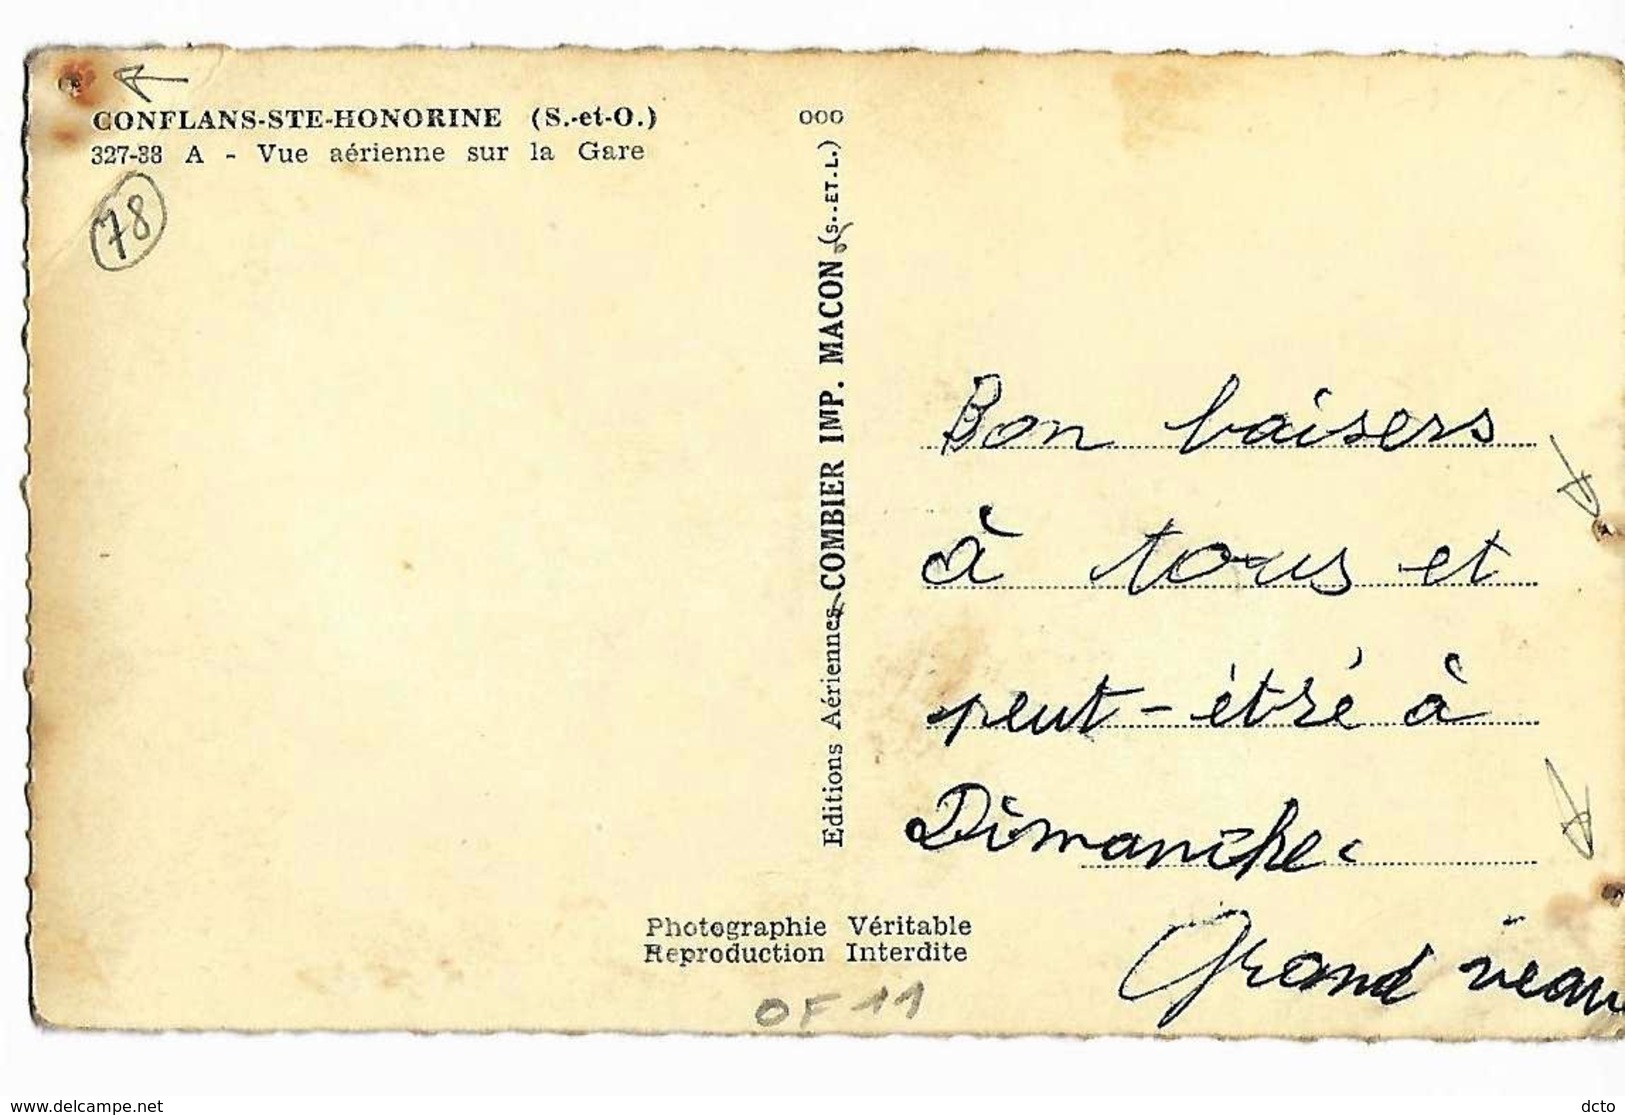 CONFLANS-STE-HONORINE (S.-et-O.)
327-38 A - Vue aérienne sur la Gare
78
ooo
Editions Aériennes COMBIER IMP. MACON (S.-ET-L.)
Bon baisers
à tous et
peut-étré à
Dimanche.
Grand
Photographie Véritable
Reproduction Interdite
OF 11
www.delcampe.net
dcto